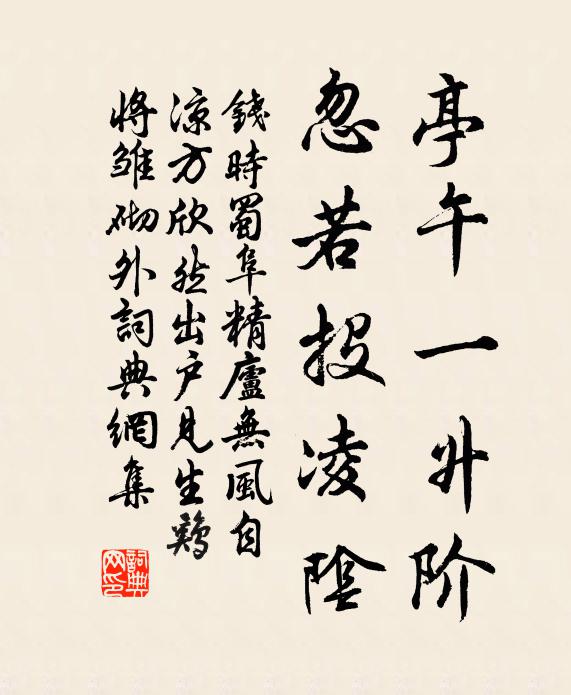 亭午一升阶
忽若投凌陰
錢時蜀阜精廬無風自
凉方欣然出户見生鷄
將雏砌外詞典網集
詞典网印